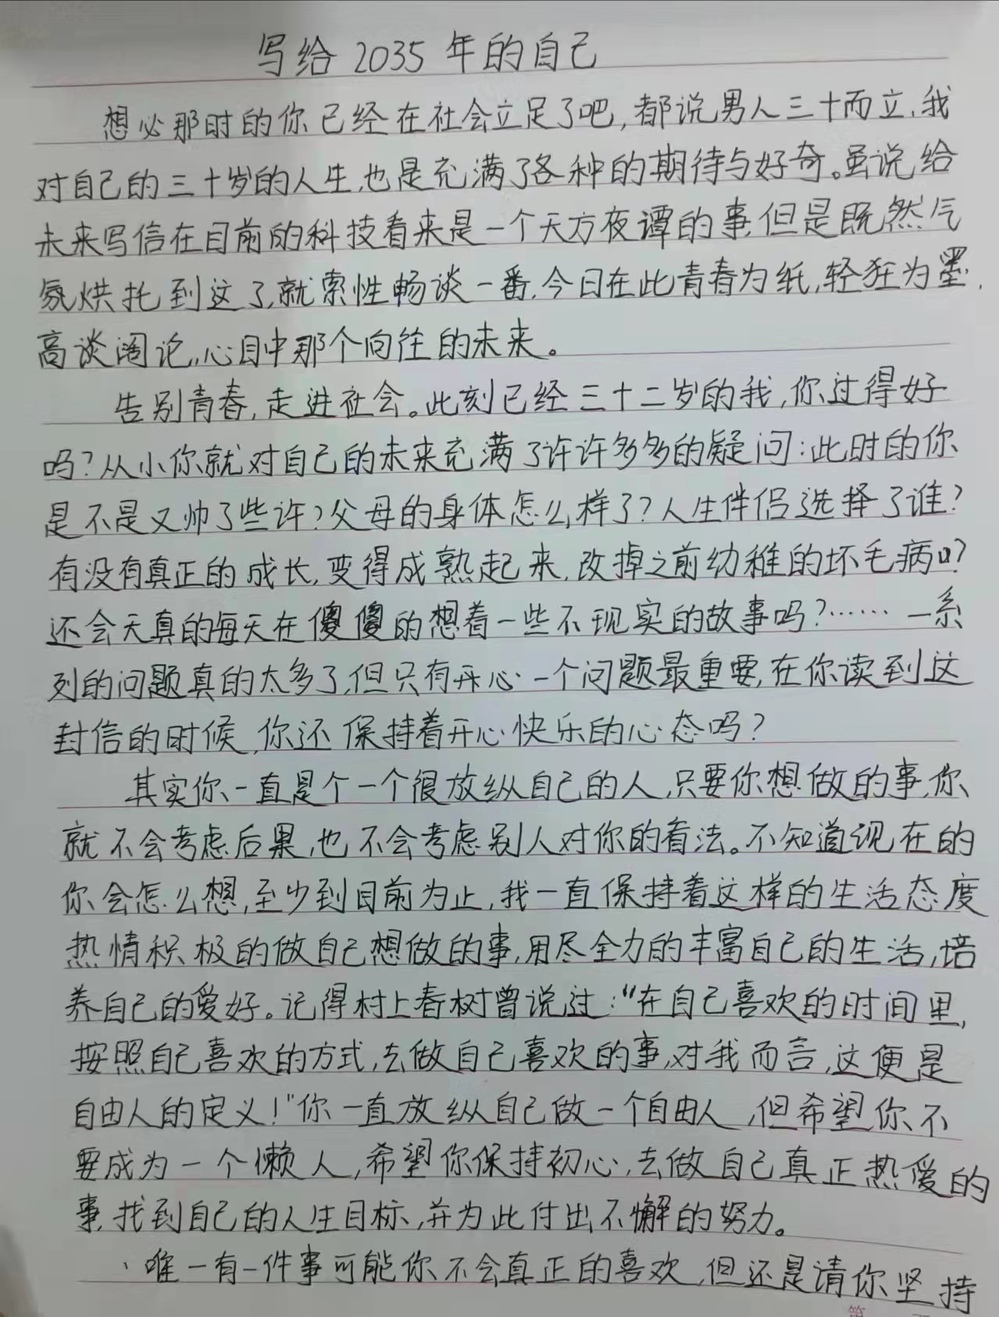 写给 2035 年的自己
想必那时的你已经在社会立足了吧,都说男人三十而立,我
对自己的三十岁的人生,也是充满了各种的期待与好奇。虽说,给
未来写信在目前的科技看来是一个天方夜谭的事,但是既然气
氛烘托到这了,就索性畅谈一番,今日在此青春为纸,轻狂为墨,
高谈阔论,心目中那个向往的未来。
告别青春,走进社会。此刻已经三十二岁的我,你过得好
吗?从小你就对自己的未来充满了许许多多的疑问:此时的你
是不是又帅了些许?父母的身体怎么样了?人生伴侣选择了谁?
有没有真正的成长,变得成熟起来,改掉之前幼稚的坏毛病?
还会天真的每天在傻傻的想着一些不现实的故事吗?……一系
列的问题真的太多了,但只有开心一个问题最重要,在你读到这
封信的时候,你还保持着开心快乐的心态吗?
其实你一直是个一个很放纵自己的人,只要你想做的事,你
就不会考虑后果,也不会考虑别人对你的看法。不知道现在的
你会怎么想,至少到目前为止,我一直保持着这样的生活态度
热情积极的做自己想做的事,用尽全力的丰富自己的生活,培
养自己的爱好。记得村上春树曾说过:“在自己喜欢的时间里,
按照自己喜欢的方式,去做自己喜欢的事,对我而言,这便是
自由人的定义!”你一直放纵自己做一个自由人,但希望你不
要成为一个懒人,希望你保持初心,去做自己真正热爱的
事,找到自己的人生目标,并为此付出不懈的努力。
唯一有一件事可能你不会真正的喜欢,但还是请你坚持